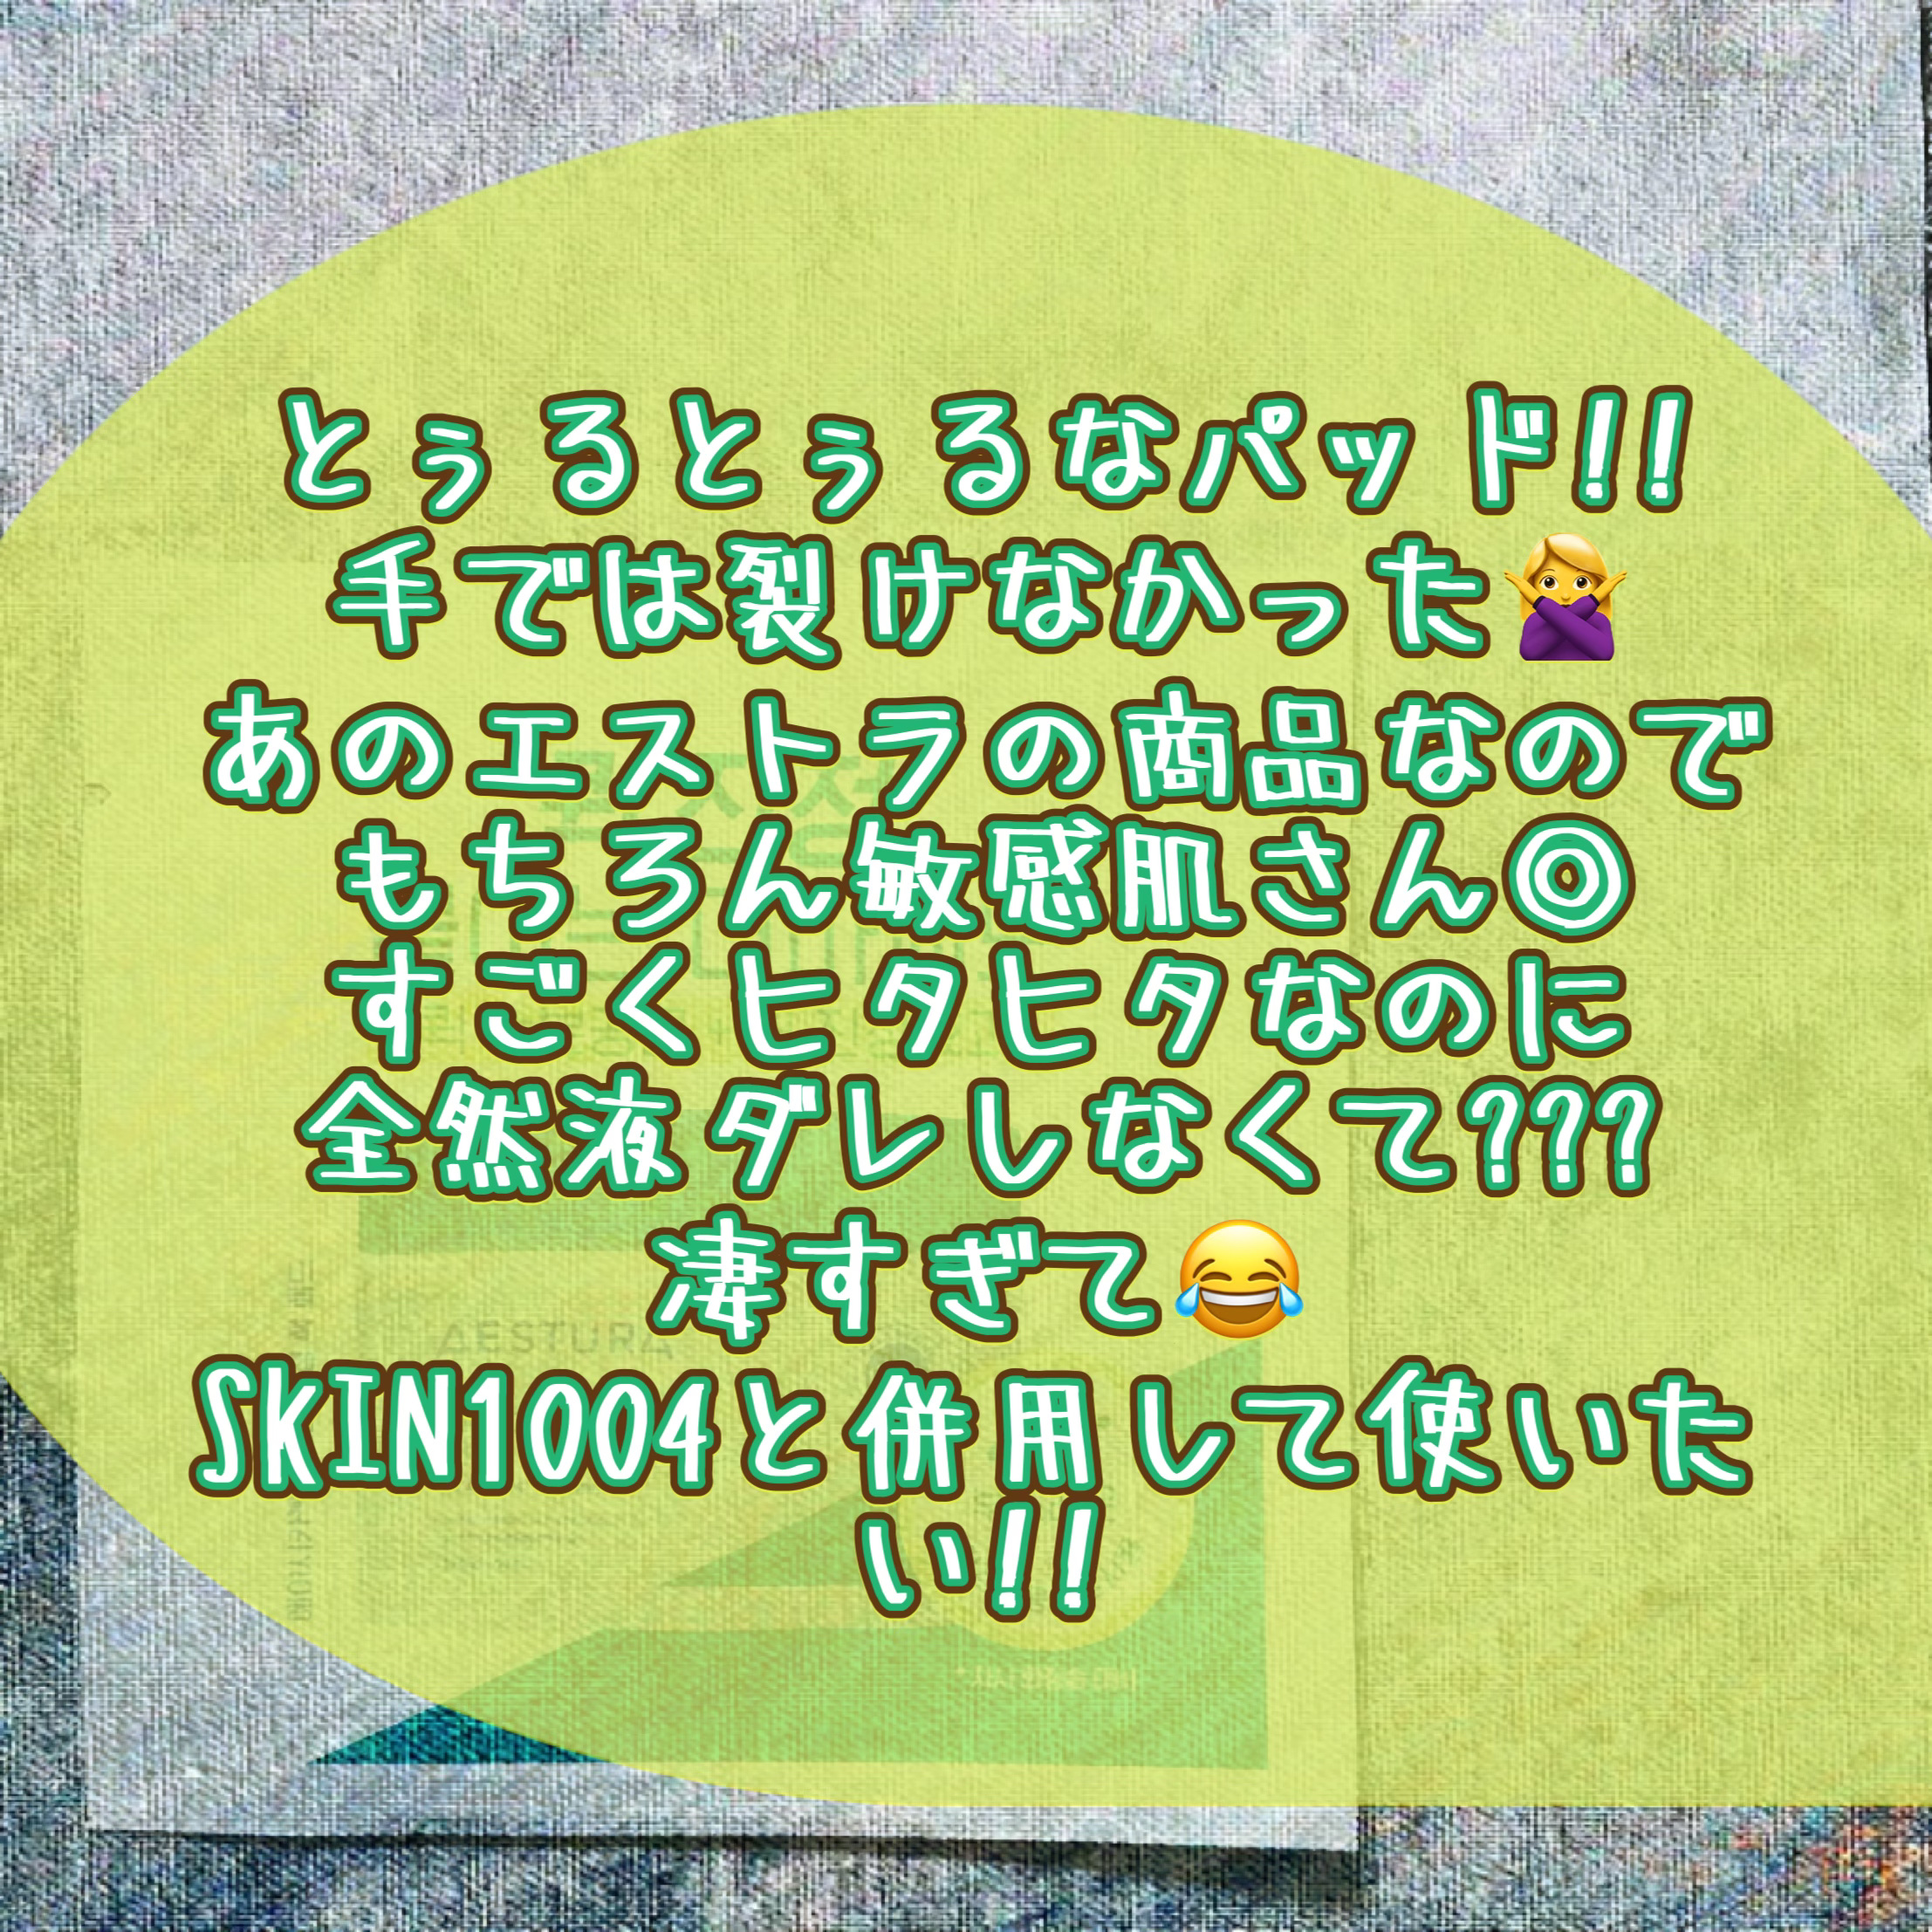 とぅるとぅるなパッド!!
手では裂けなかった🙅‍♀️
あのエストラの商品なので
もちろん敏感肌さん◎
すごくヒタヒタなのに
全然液ダレしなくて???
凄すぎて😂
AESTURA
SKIN1004と併用して使いた
い!!